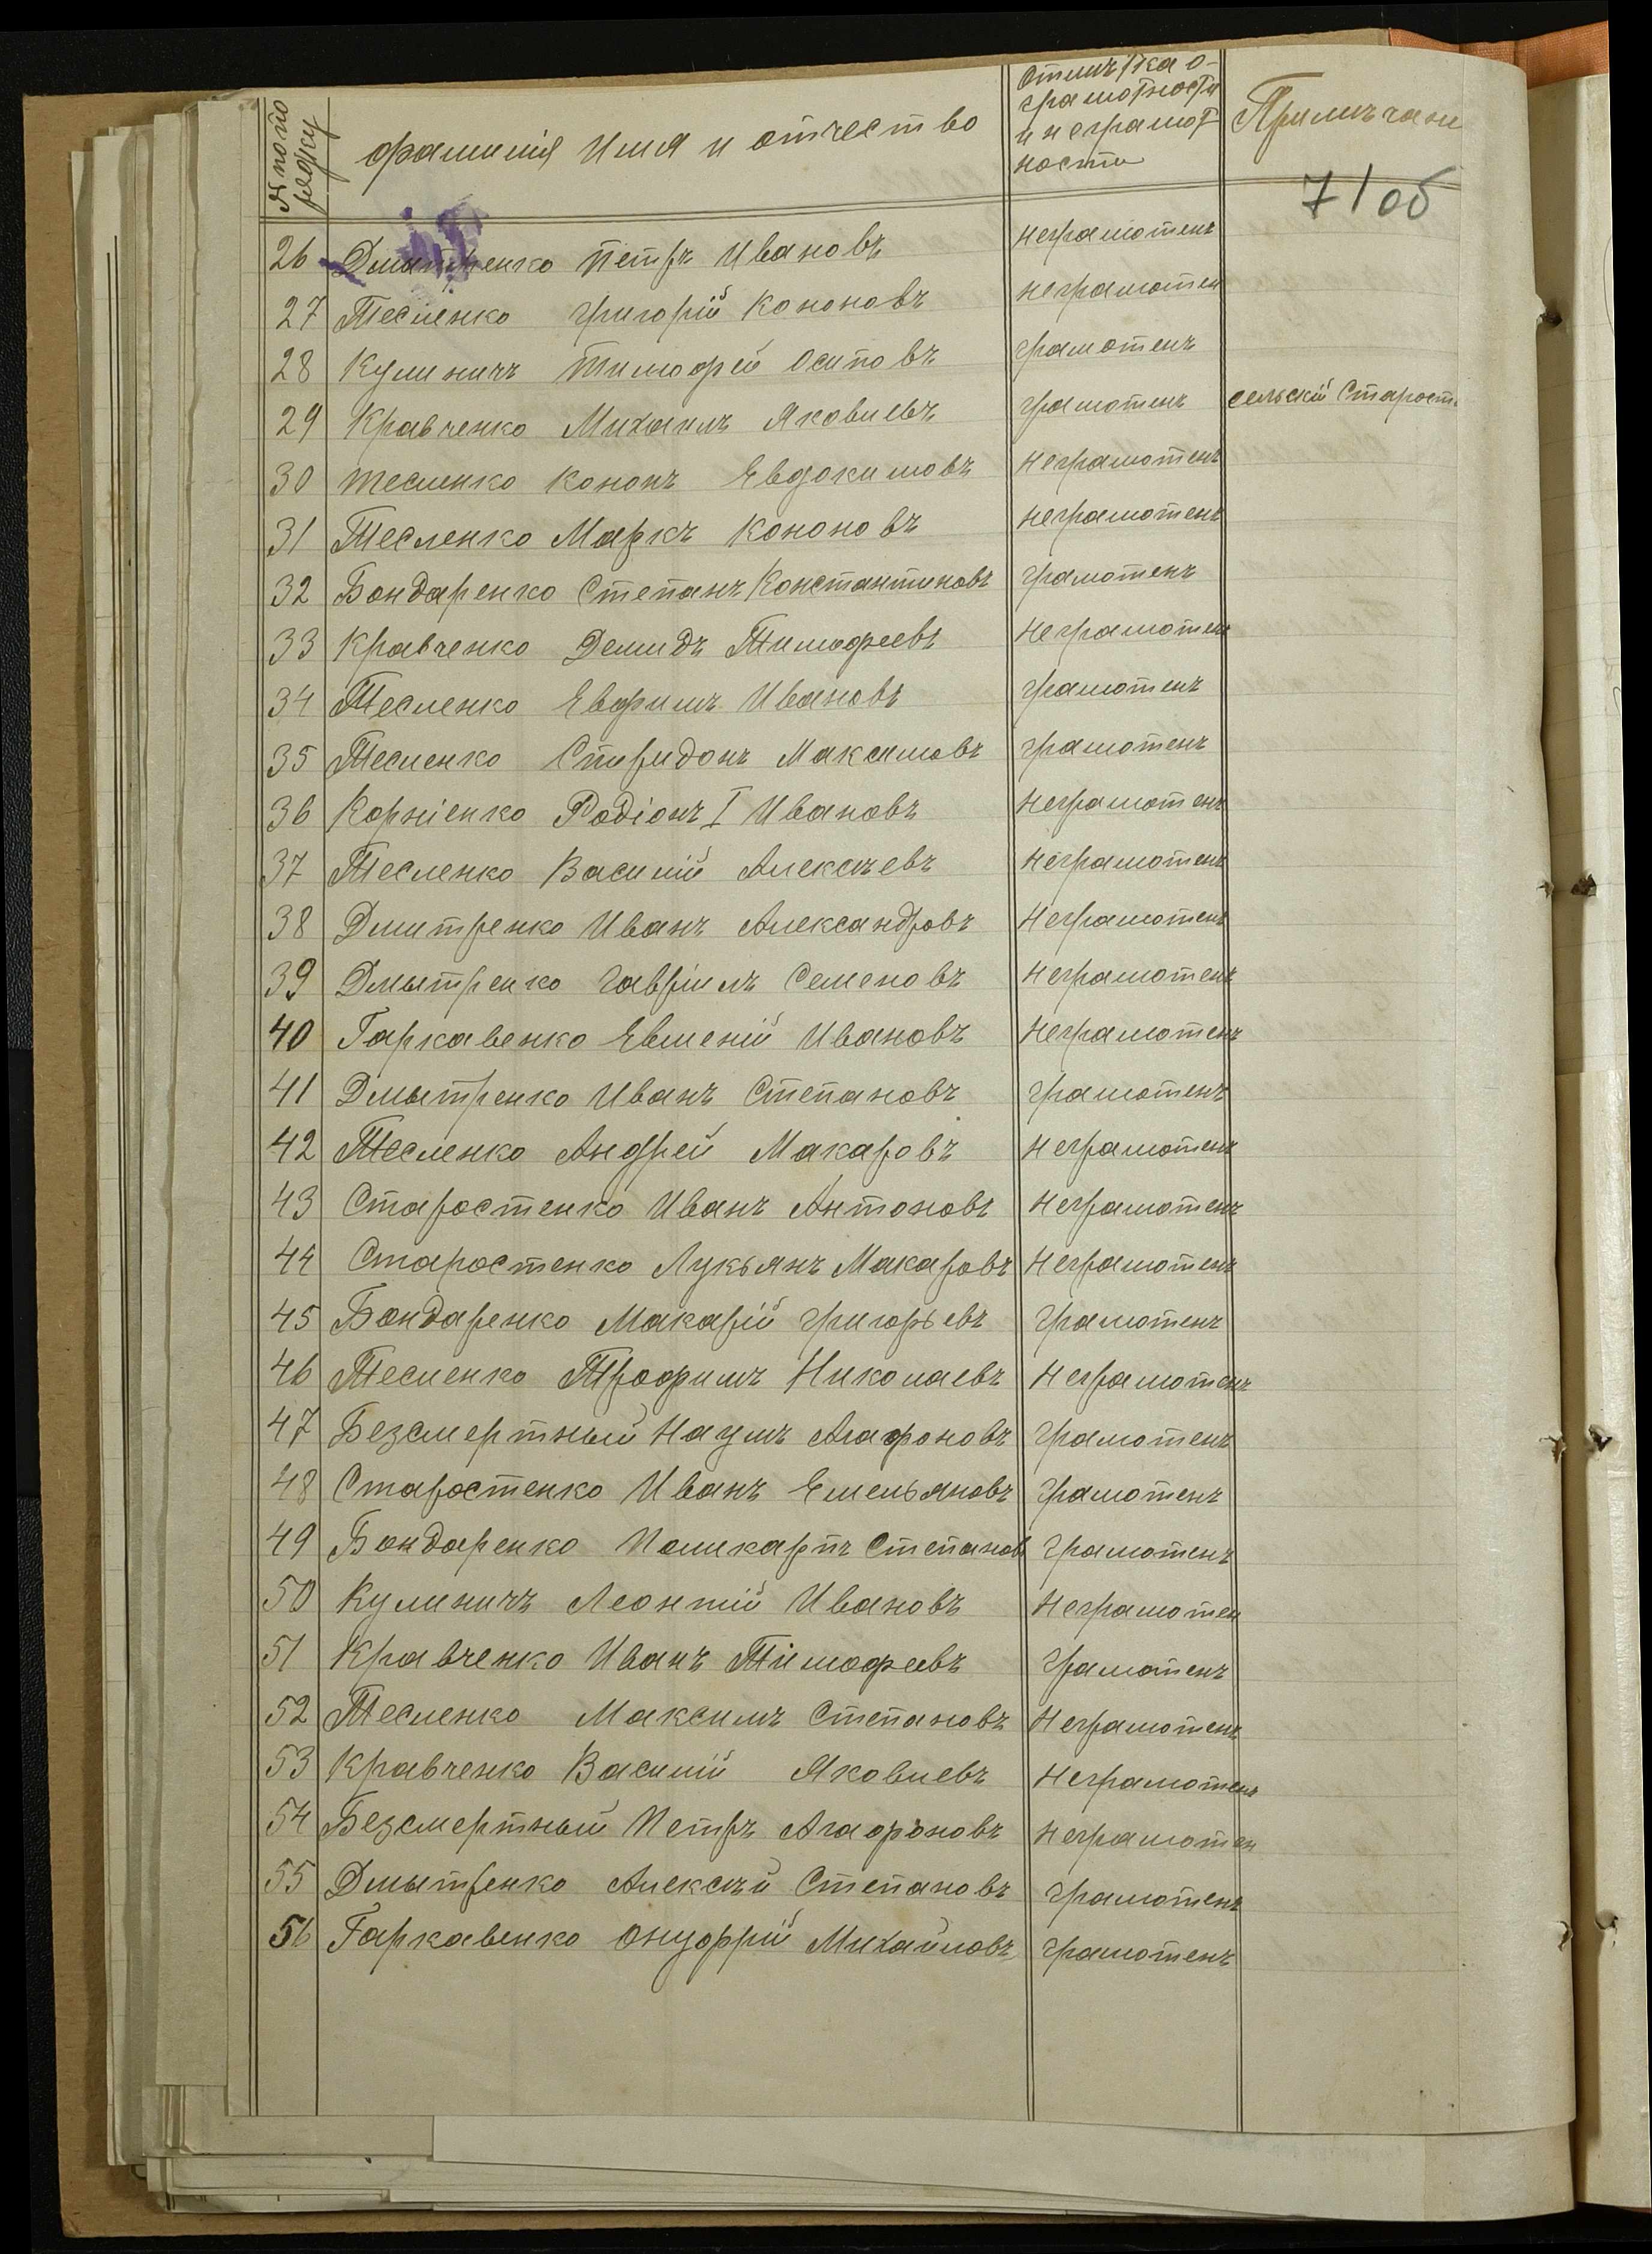 № по по
рядку
фамилія Имя и отчество
Отмѣтка о
грамотности
и неграмот
ности
Примѣчани
71 об
26 Дмытренко Петръ Ивановъ неграмотенъ
27 Тесленко Григорій Кононовъ неграмотен
28 Кулиничъ Тимофей Осиповъ грамотенъ
29 Кравченко Михаилъ Яковлевъ грамотенъ сельскій Старост
30 Тесленко Кононъ Евдокимовъ неграмотенъ
31 Тесленко Маркъ Кононовъ неграмотенъ
32 Бондаренко Степанъ Константиновъ грамотенъ
33 Кравченко Демидъ Тимофеевъ неграмотенъ
34 Тесленко Евфимъ Ивановъ грамотенъ
35 Тесленко Спиридонъ Максимовъ грамотенъ
36 Корніенко Родіонъ I Ивановъ неграмотенъ
37 Тесленко Василій Алексѣевъ неграмотенъ
38 Дмитренко Иванъ Александровъ неграмотенъ
39 Дмытренко Гавріилъ Семеновъ неграмотенъ
40 Гаркавенко Евмений Ивановъ неграмотенъ
41 Дмытренко Иванъ Степановъ грамотенъ
42 Тесленко Андрей Макаровъ неграмотенъ
43 Старостенко Иванъ Антоновъ неграмотенъ
44 Старостенко Лукьянъ Макаровъ неграмотенъ
45 Бондаренко Макарій Григорьевъ грамотенъ
46 Тесленко Трофимъ Николаевъ неграмотенъ
47 Безсмертный Наумъ Агафоновъ грамотенъ
48 Старостенко Иванъ Емельяновъ грамотенъ
49 Бондаренко Поликарпъ Степанов грамотенъ
50 Кулиничъ Леонтій Ивановъ неграмотен
51 Кравченко Иванъ Тимофеевъ грамотенъ
52 Тесленко Максимъ Степановъ неграмотенъ
53 Кравченко Василій Яковлевъ неграмотенъ
54 Безсмертный Петръ Агафоновъ неграмотен
55 Дмытренко Алексѣй Степановъ грамотенъ
56 Гаркавенко Онуфрій Михайловъ грамотенъ